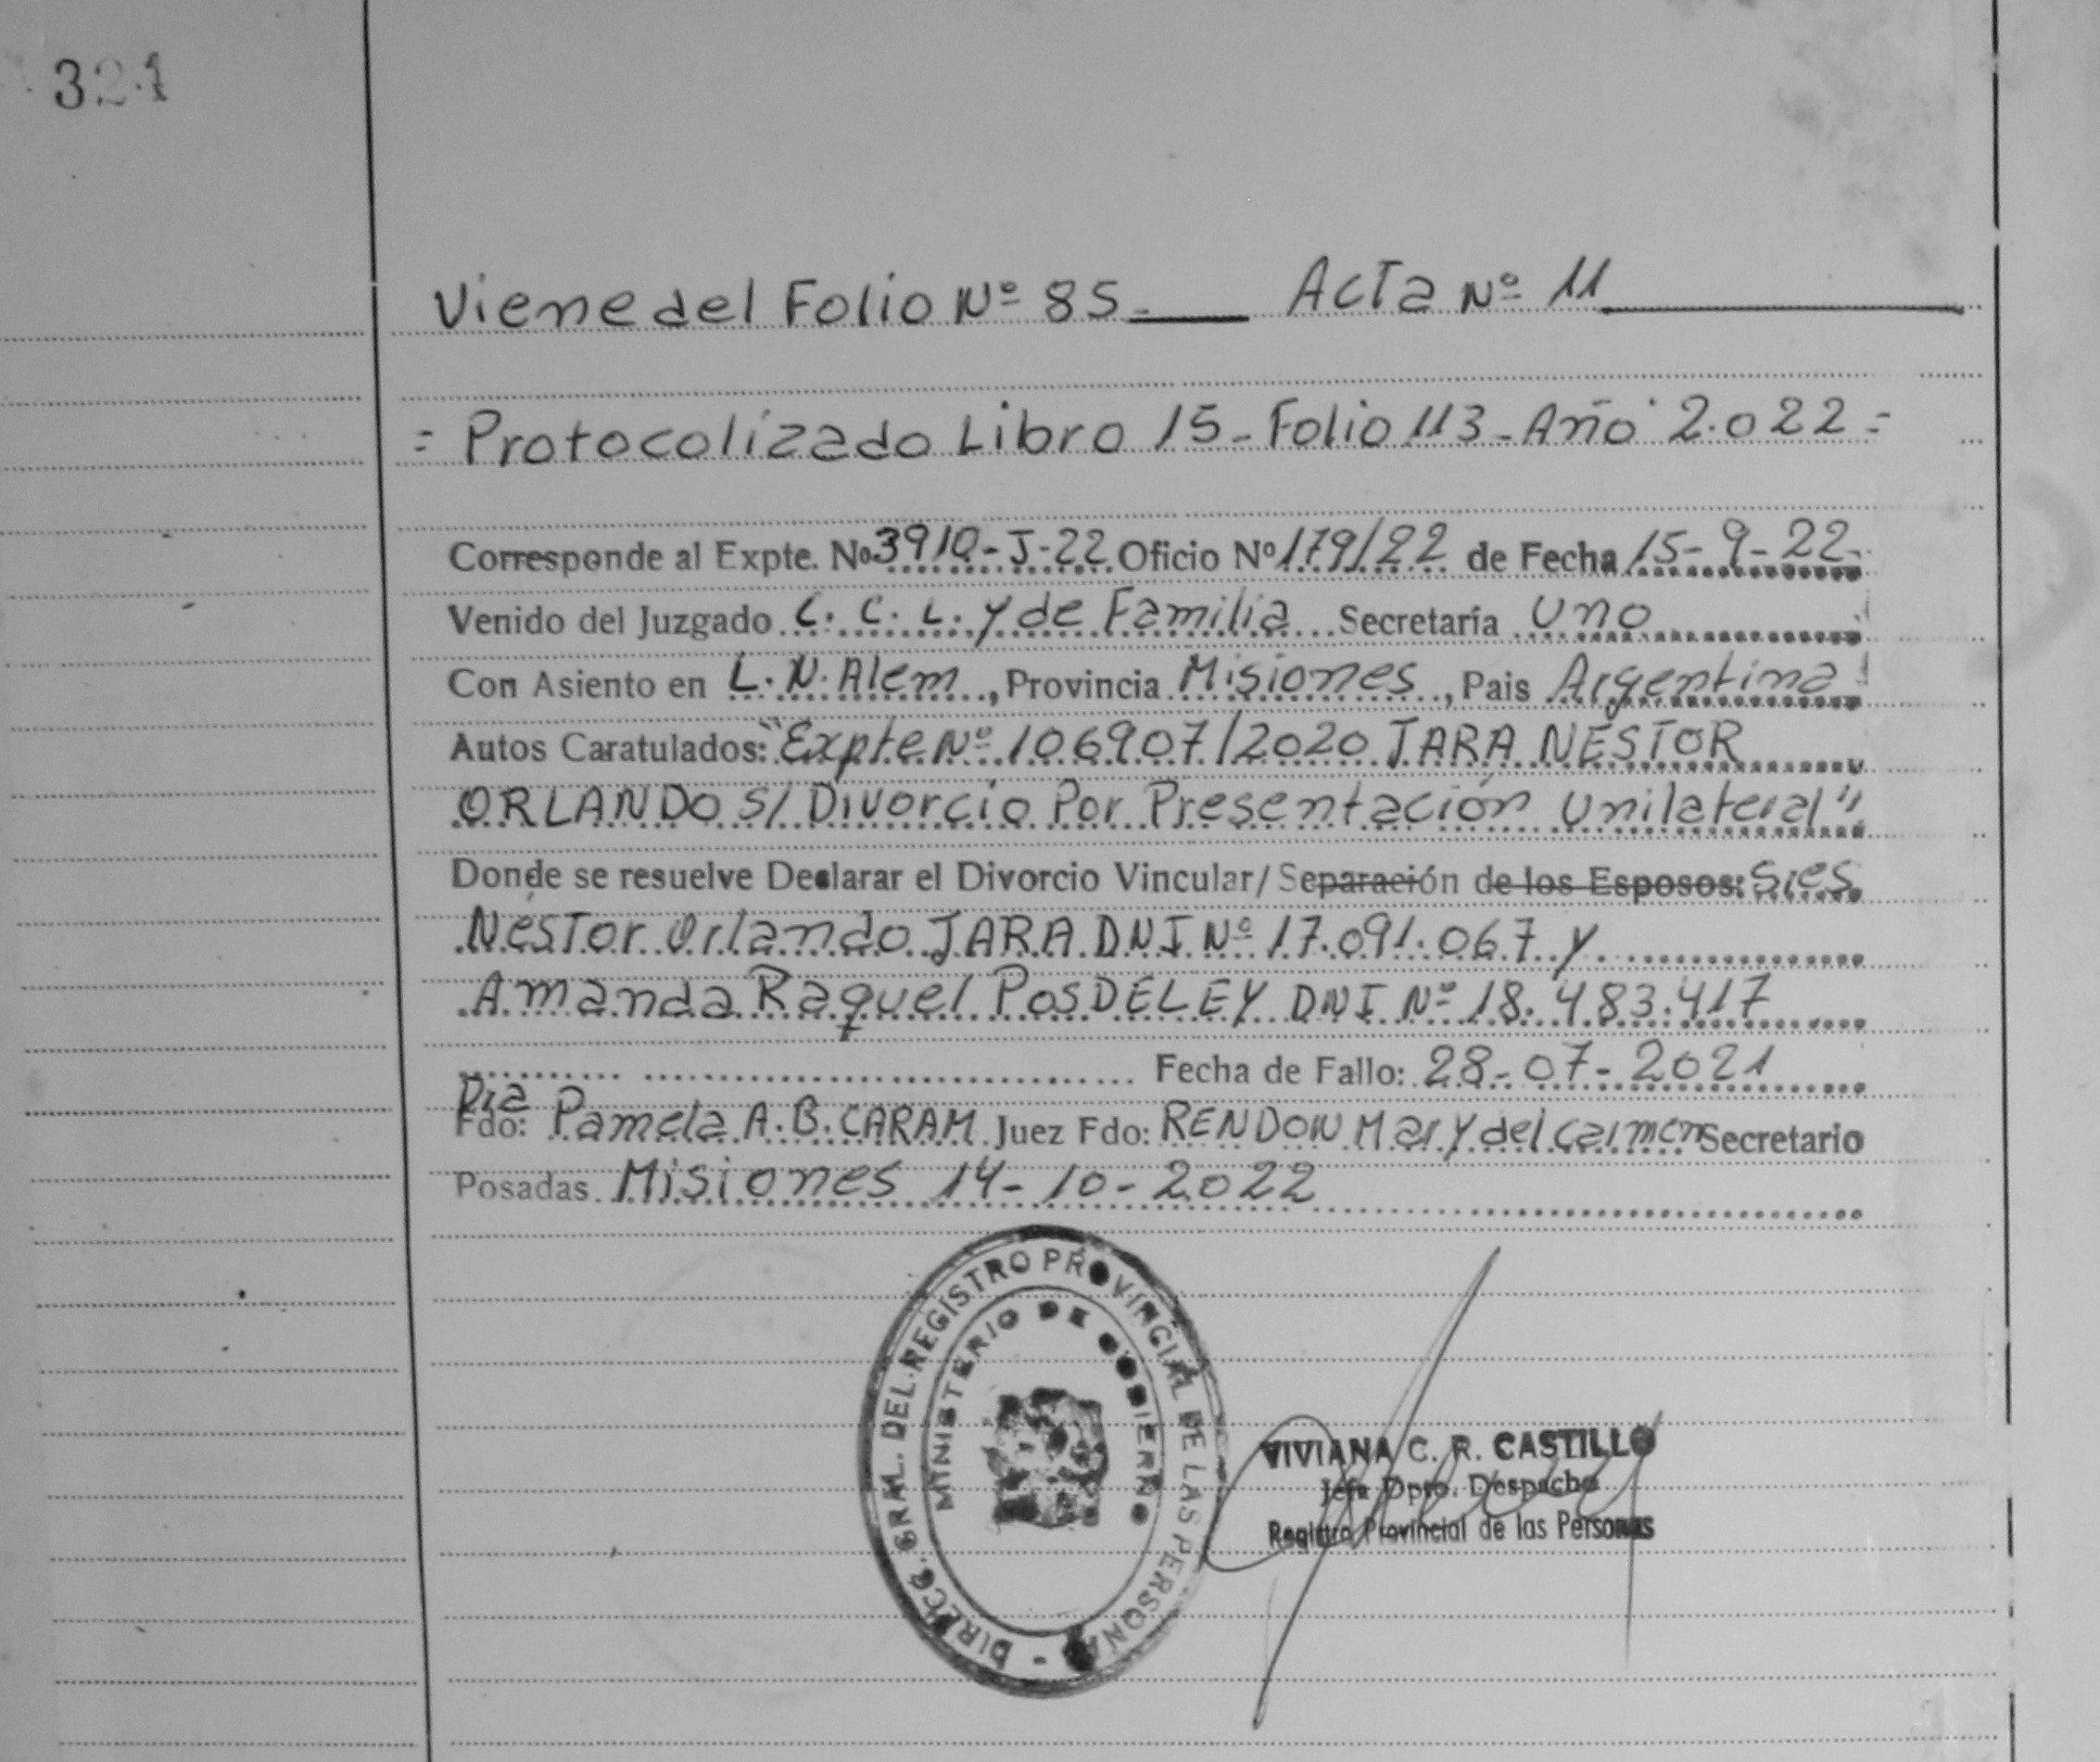 321
Viene del Folio Nº 85 ___ Acta Nº 11
= Protocolizado Libro 15 - Folio 113 - Año 2.022 =
Corresponde al Expte. Nº 3910-J-22 Oficio Nº 179/22 de Fecha 15-9-22
Venido del Juzgado C. C. L. y de Familia Secretaría Uno
Con Asiento en L. N. Alem, Provincia Misiones, Pais Argentina
Autos Caratulados: "Expte Nº 106907/2020 JARA NÉSTOR
ORLANDO S/ Divorcio Por Presentación Unilateral"
Donde se resuelve Declarar el Divorcio Vincular/ Separación de los Esposos: Sres
Néstor Orlando JARA DNI Nº 17.091.067 y
Amanda Raquel POSDELEY DNI Nº 18.483.417
Fecha de Fallo: 28-07-2021
Dra
Fdo: Pamela A. B. CARAM Juez Fdo: RENDON Mary del Carmen Secretario
Posadas Misiones 14-10-2022
DIRECC. GRAL. DEL REGISTRO PROVINCIAL DE LAS PERSONAS -
MINISTERIO DE GOBIERNO
VIVIANA C. R. CASTILLO
Jefa Dpto. Despacho
Registro Provincial de las Personas